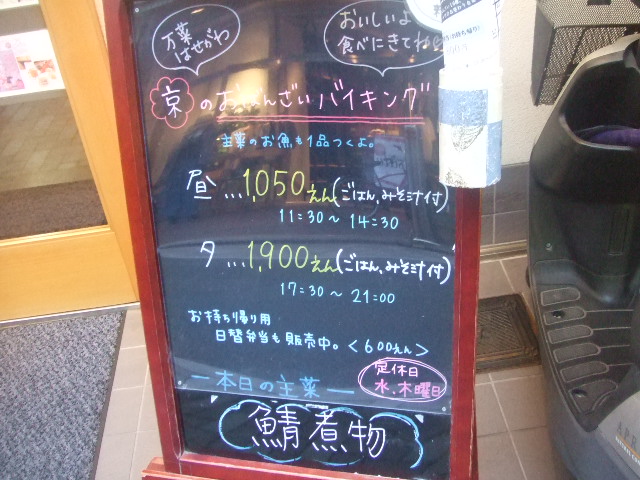 万菜
はせがわ
おいしいよ
食べにきてね
京のおばんざいバイキング
主菜のお魚も1品つくよ。
昼…1,050えん(ごはん,みそ汁付)
11:30〜14:30
夕…1,900えん(ごはん,みそ汁付)
17:30〜21:00
お持ち帰り用
日替弁当も販売中。<600えん>
定休日
水.木曜日
ー本日の主菜ー
鯖煮物